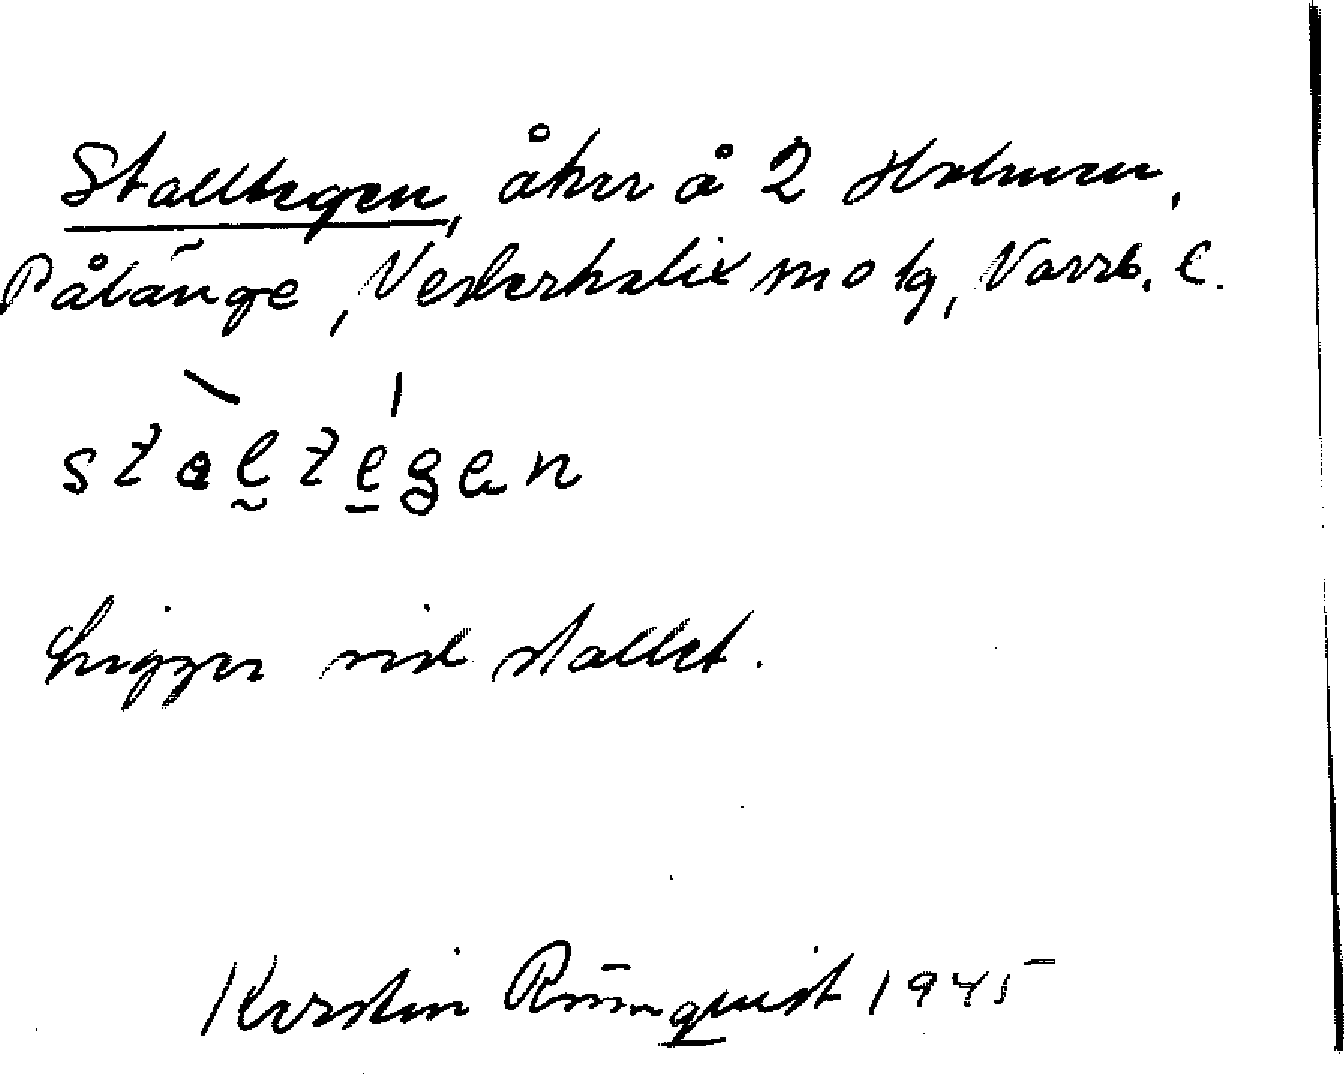 Stalltegen, åker å 2 Holmen,
Pålänge, Nederkalix m o tg, Norrb. l.
stal̰te̱gen
Ligger vid stallet.
Kerstin Rönnquist 1945